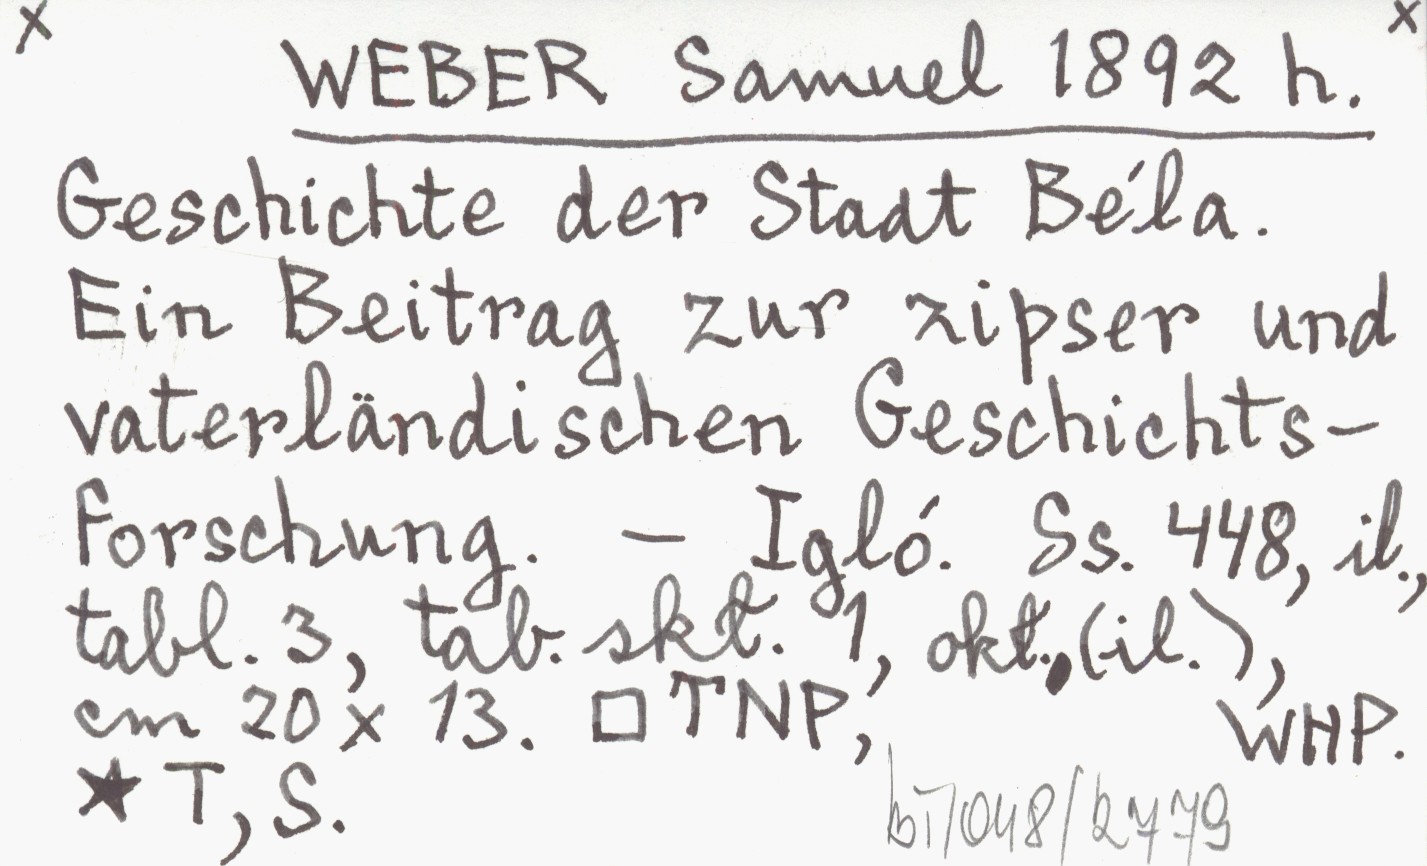 x x
WEBER Samuel 1892 h.
Geschichte der Stadt Béla.
Ein Beitrag zur zipser und
vaterländischen Geschichts-
forschung. – Igló. Ss. 448, il.,
tabl. 3, tab. skł. 1, okł., (il.),
cm 20 x 13. □ TNP, WHP.
★ T, S.